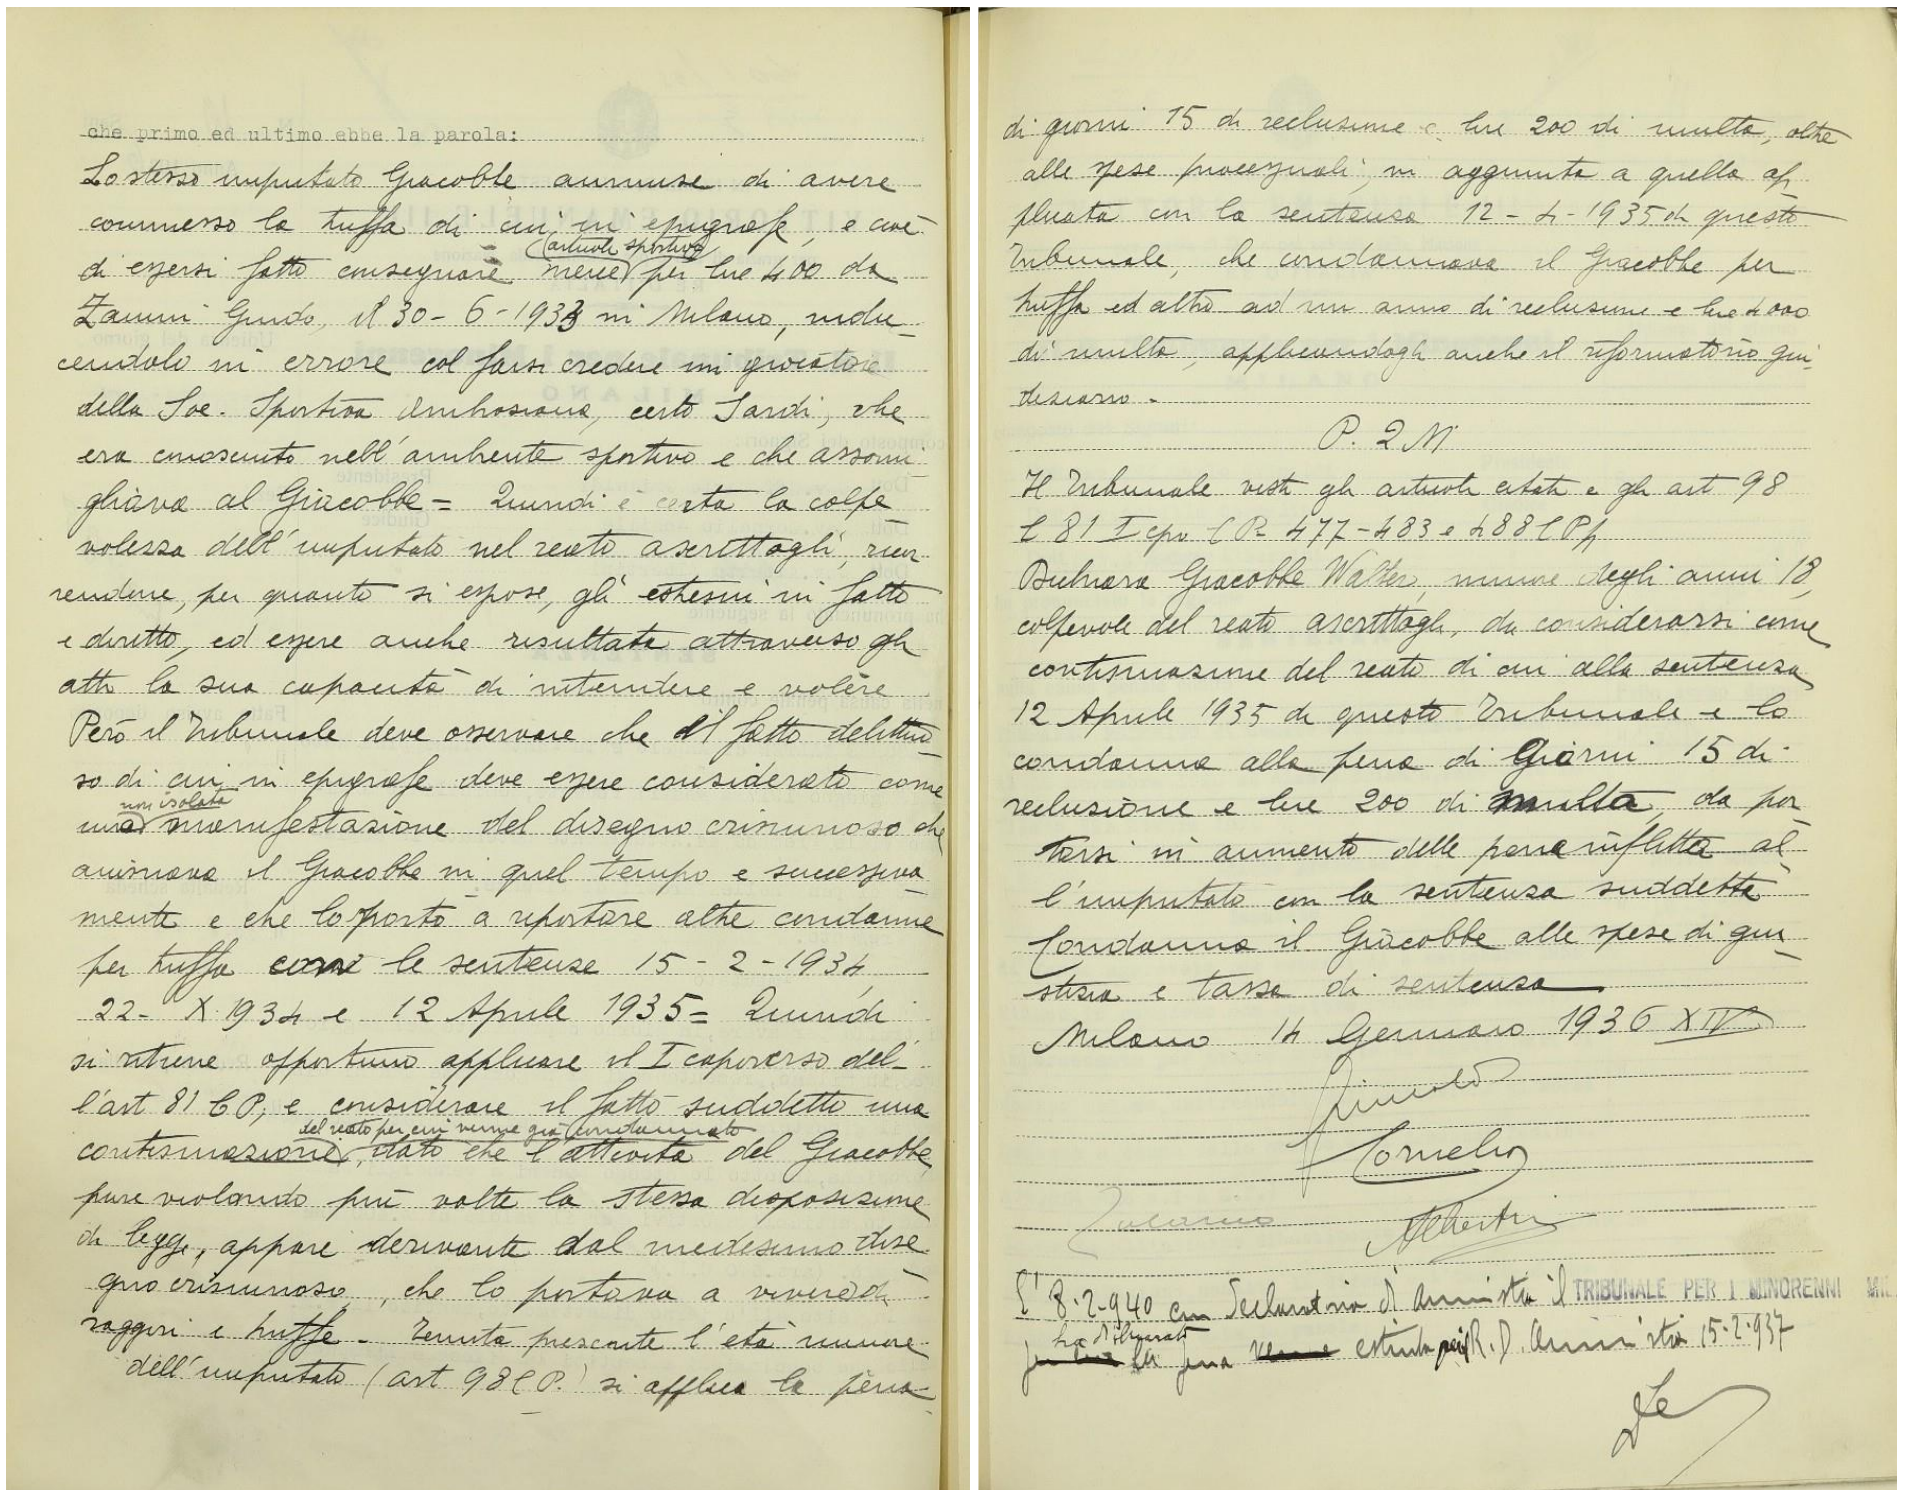 che primo ed ultimo ebbe la parola:
Lo stesso imputato Giacobbe ammise di avere
commesso la truffa di cui in epigrafe, e cioè
(articoli sportivi)
di essersi fatto consegnare merce per lire 400 da
Zanini Guido, il 30-6-1933 in Milano, indu-
cendolo in errore col farsi credere un giocatore
della Soc. Sportiva Ambrosiana, certo Sardi, che
era conosciuto nell'ambiente sportivo e che assomi
gliava al Giacobbe = Quindi è certa la colpe
volezza dell'imputato nel reato ascrittogli, ricor-
rendone, per quanto si espose, gli estremi in fatto
e diritto, ed essere anche risultata attraverso gli
atti la sua capacità di intendere e volere
Però il Tribunale deve osservare che il fatto delittuo
so di cui in epigrafe deve essere considerato come
non isolata
una manifestazione del disegno criminoso che
animava il Giacobbe in quel tempo e successiva
mente e che lo portò a riportare altre condanne
per truffa con le sentenze 15-2-1934,
22- X 1934 e 12 Aprile 1935 = Quindi
si ritiene opportuno applicare il I capoverso del-
l'art 81 C P, e considerare il fatto suddetto una
del reato per cui venne già condannato
continuazione, dato che l'attività del Giacobbe,
pure violando più volte la stessa disposizione
di legge, appare derivante dal medesimo dise
gno criminoso, che lo portava a vivere di
raggiri e truffe - Tenuta presente l'età minore
dell'imputato (art 98 C P.) si applica la pena
di giorni 15 di reclusione e lire 200 di multa, oltre
alle spese processuali, in aggiunta a quella ap
plicata con la sentenza 12-4-1935 di questo
Tribunale, che condannava il Giacobbe per
truffa ed altro ad un anno di reclusione e lire 4000
di multa, applicandogli anche il riformatorio giu-
diziario -
P. Q M
Il Tribunale visti gli articoli citati e gli art 98
e 81 I cpv C P 477-483 e 488 C P p
Dichiara Giacobbe Walter, minore degli anni 18,
colpevole del reato ascrittogli, da considerarsi come
continuazione del reato di cui alla sentenza
12 Aprile 1935 di questo Tribunale e lo
condanna alla pena di Giorni 15 di
reclusione e lire 200 di multa, da por
tarsi in aumento della pena inflitta al-
l'imputato con la sentenza suddetta
Condanna il Giacobbe alle spese di giu-
stizia e tasse di sentenza
Milano 14 Gennaio 1936 XIV°
Cornelio
Albertini
L'8-2-940 con declaratoria di amnistia il TRIBUNALE PER I MINORENNI MIL
ha dichiarato
la pena estinta per R. D. Amnistia 15-2-937